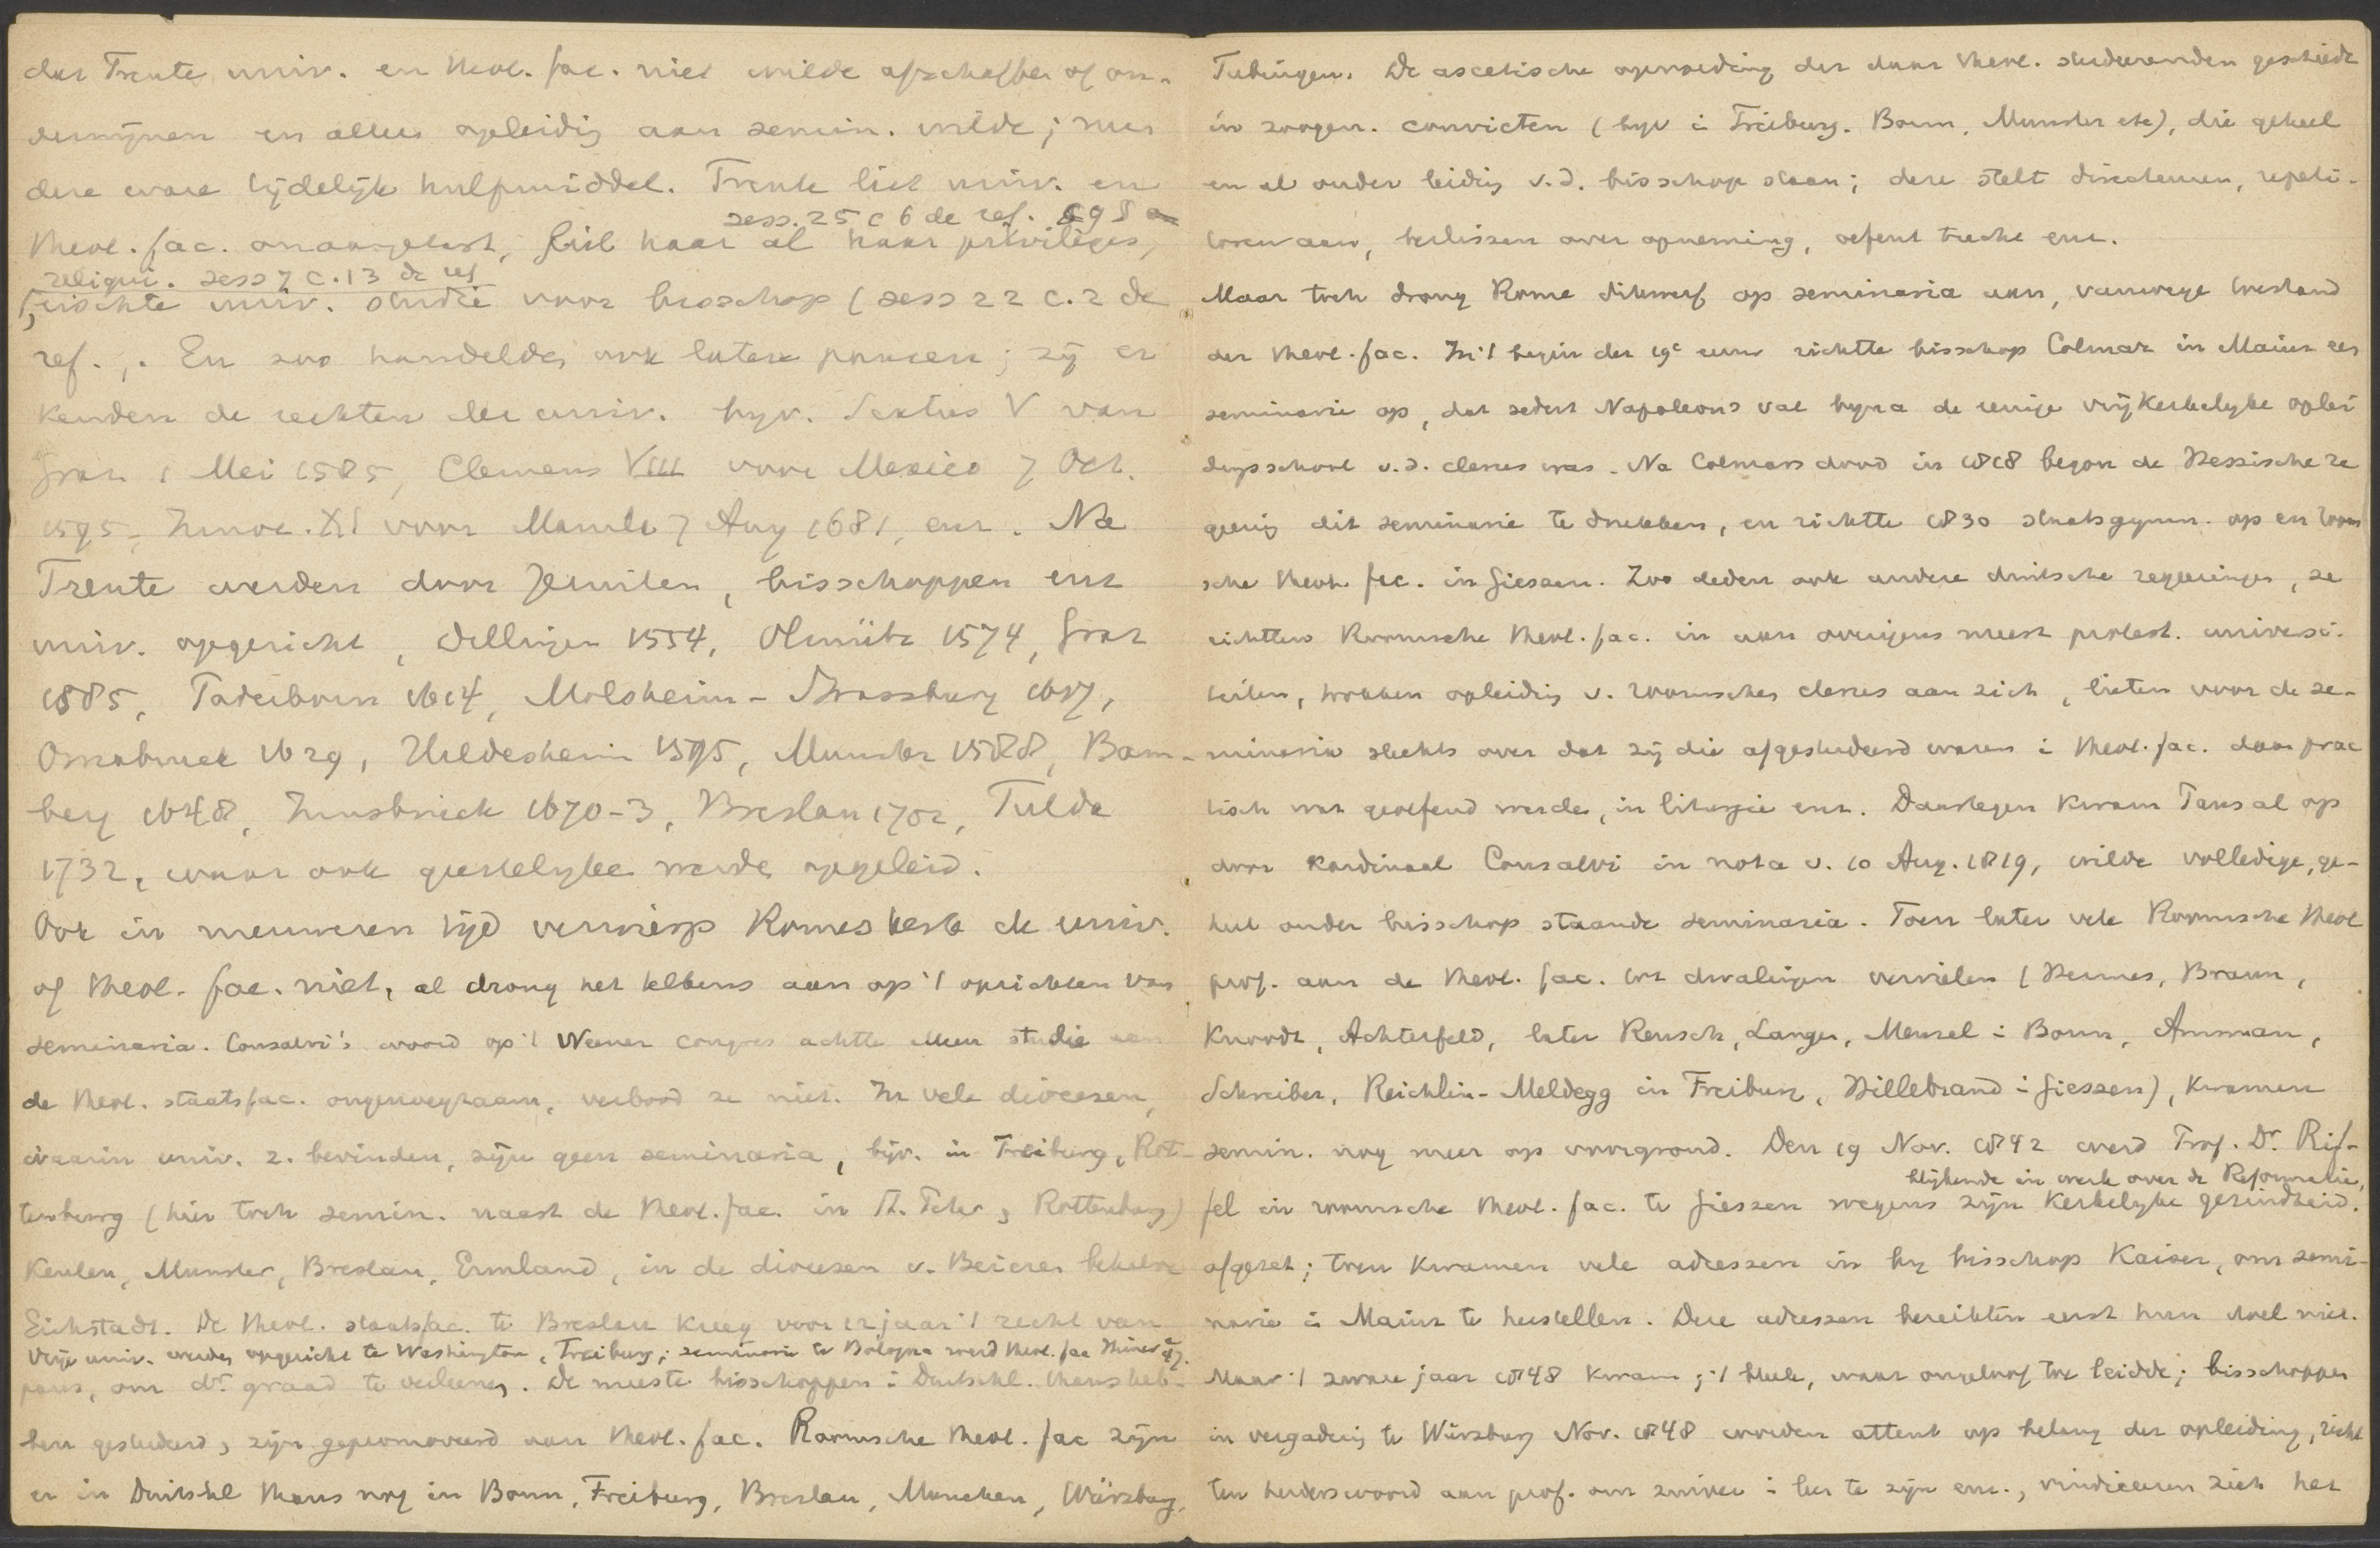 dat Trente univ. en theol. fac. niet wilde afschaffen of on-
dermijnen en alleen opleidig aan semin. wilde; neen
deze ware tijdelijk hulpmiddel. Trente liet univ. en
sess. 25 c 6 de ref.
theol. fac. onaangetast, liet haar al haar privileges,
religui. sess 7 c. 13 de ref
eischte univ. studie voor bisschop (sess 22 c. 2 de
ref. En zoo handelden ook latere pausen; zij er
kenden de rechten der univ. byv. Sixtus V van
Graz 1 Mei 1585, Clemens VIII voor Mexico 7 Oct.
1595, Innoc. XI voor Manila 7 Aug 1681, enz. Na
Trente werden door Jezuiten, bisschoppen enz
univ. opgericht, Dillingen 1554, Olmütz 1574, Graz
1585, Paderborn 1614, Molsheim - Strassburg 1617,
Osnabruck 1629, Hildesheim 1595, Munster 1588, Bam-
berg 1648, Innsbruck 1670-3, Breslau 1702, Fulda
1732, waar ook geestelyke werde opgeleid.
Ook in nieuweren tijd verwierp Romes kerk de univ.
of theol. fac. niet, al drong het telkens aan op 't oprichten van
seminaria. Consalvi's woord op 't Weener congres achtte alleen studie aan
de theol. staatsfac. ongenoegzaam, verbood ze niet. In vele diocesen,
waarin univ. z. bevinden, zijn geen seminaria, bijv. in Freiburg, Rot-
tenburg (hier toch semin. naast de theol. fac. in St. Peter, Rottenburg)
Keulen, Munster, Breslau, Ermland, in de diocesen v. Beieren behalve
Eichstadt. De theol. staatsfac. te Breslau kreeg voor 12 jaar 't recht van
Vrije univ. werden opgericht te Washington, Freiburg; seminarie te Bologna werd theol. fac
paus, om dr. graad te verleenen. De meeste bisschoppen i Duitschl. thans heb-
ben gestudeerd, zijn gepromoveerd aan theol. fac. Roomsche theol. fac zijn
er in Duitschl thans nog in Bonn, Freiburg, Breslau, Munchen, Würzburg,
Tubingen. De ascetische opvoeding der daar theol. studeerenden geschiedt
in zoogen. convicten (byv i Freiburg. Bonn, Munster etc), die geheel
en al onder leidig v.d. bisschop staan; deze stelt directeuren, repeti-
toren aan, beslissen over opneming, oefent tucht enz.
Maar toch drong Rome dikwerf op seminaria aan, vanwege toestand
der theol. fac. In 't begin der 19e eeuw richtte bisschop Colmar in Mainz een
seminarie op, dat sedert Napoleons val byna de eenige vrij kerkelyke oplei
dingsschool v.d. clerus was. Na Colmars dood in 1818 begon de Hessische re
geerig dit seminarie te drukken, en richtte 1830 staatsgymn. op en room
sche theol. fac. in Giessen. Zoo deden ook andere duitsche regeeringen, ze
richtten Roomsche theol. fac. in aan overigens meest protest. universi-
teiten, trokken opleidig v. roomschen clerus aan zich, lieten voor de se-
minaria slechts over dat zij die afgestudeerd waren i theol. fac. daar prac
tisch wat geoefend werden, in liturgie enz. Daartegen kwam Paus al op
door Kardinaal Consalvi in nota v. 10 Aug. 1819, wilde volledige, ge-
heel onder bisschop staande seminaria. Toen later vele Roomsche theol
prof. aan de theol. fac. tot dwalingen vervielen (Hermes, Braun,
Knoodt, Achterfeld, later Reusch, Langen, Menzel i Bonn, Amman,
Schreiber, Reichlin-Meldegg in Freiburg, Hillebrand i Giessen), kwamen
semin. nog meer op voorgrond. Den 19 Nov. 1842 werd Prof. Dr. Rif-
blijkende in werk over de Reformatie,
fel in roomsche theol. fac. te Giessen wegens zijn kerkelyke gezindheid.
afgezet; toen kwamen vele adressen in by bisschop Kaiser, om semi-
narie i Mainz te herstellen. Deze adressen bereikten eerst hun doel niet.
Maar 't zware jaar 1848 kwam; 't bleek, waar ongeloof toe leidde; bisschoppen
in vergaderig te Würzburg Nov. 1848 werden attent op belang der opleiding, richt
ten herderswoord aan prof. om zuiver i leer te zijn enz., vindiceeren zich het